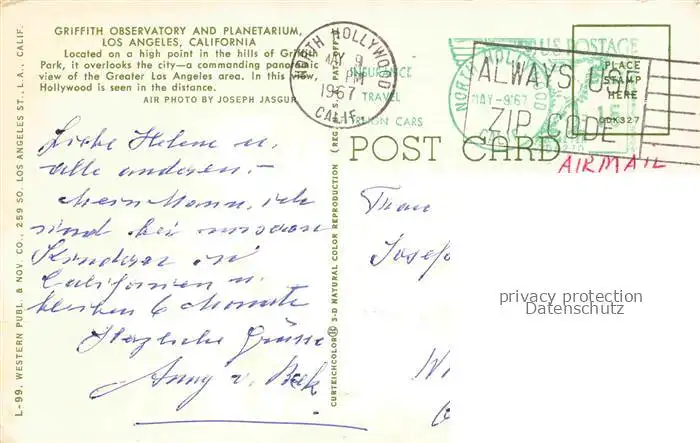 GRIFFITH OBSERVATORY AND PLANETARIUM,
LOS ANGELES, CALIFORNIA
Located on a high point in the hills of Griffith
Park, it overlooks the city—a commanding panoramic
view of the Greater Los Angeles area. In this view,
Hollywood is seen in the distance.
AIR PHOTO BY JOSEPH JASGUR
L-99. WESTERN PUBL. & NOV. CO., 259 SO. LOS ANGELES ST., L.A., CALIF.
Liebe Helene u.
alle anderen.-
Mein Mann, ich
sind bei unseren
Kindern in
Californien u.
bleiben 6 Monate
Herzliche Grüsse
Anny v.
CURTEICHCOLOR 3-D NATURAL COLOR REPRODUCTION (REG. U.S.A. PAT. OFF.)
NORTH HOLLYWOOD
MAY 9
PM
1967
CALIF.
INSURANCE
TRAVEL
CARS
NORTH HOLLYWOOD
MAY-9'67
CALIF.
U.S. POSTAGE
ALWAYS USE
ZIP CODE
PLACE
STAMP
HERE
POST CARD
AIRMAIL
Frau
Josef
privacy protection
Datenschutz